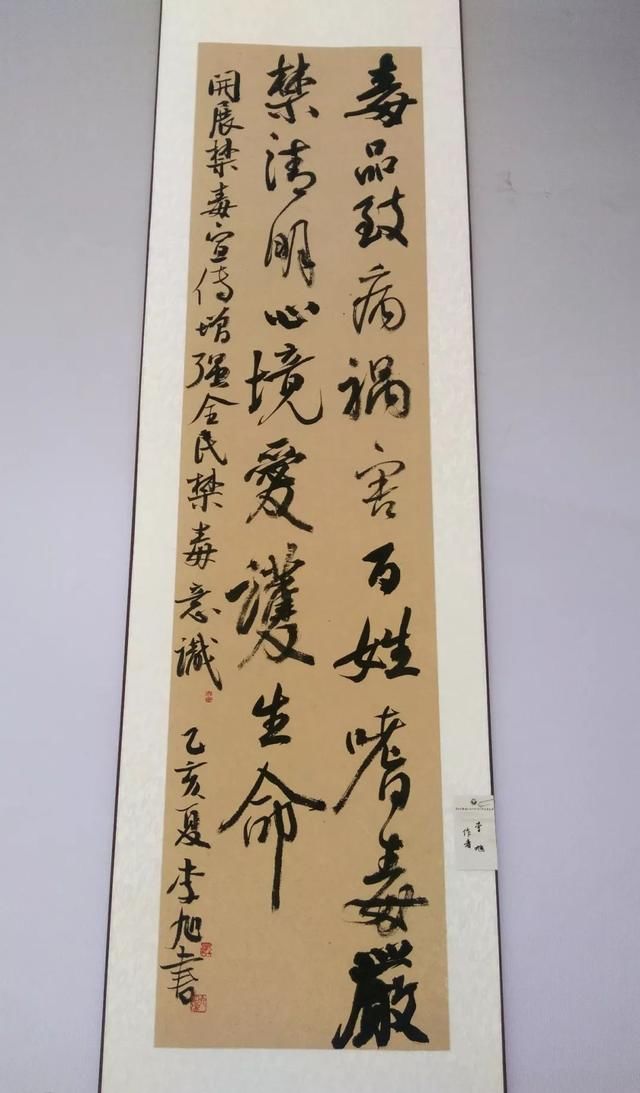 毒品致病祸害百姓嗜毒嚴
禁清明心境愛護生命
開展禁毒宣传增强全民禁毒意識
乙亥夏李旭書
作者
李旭